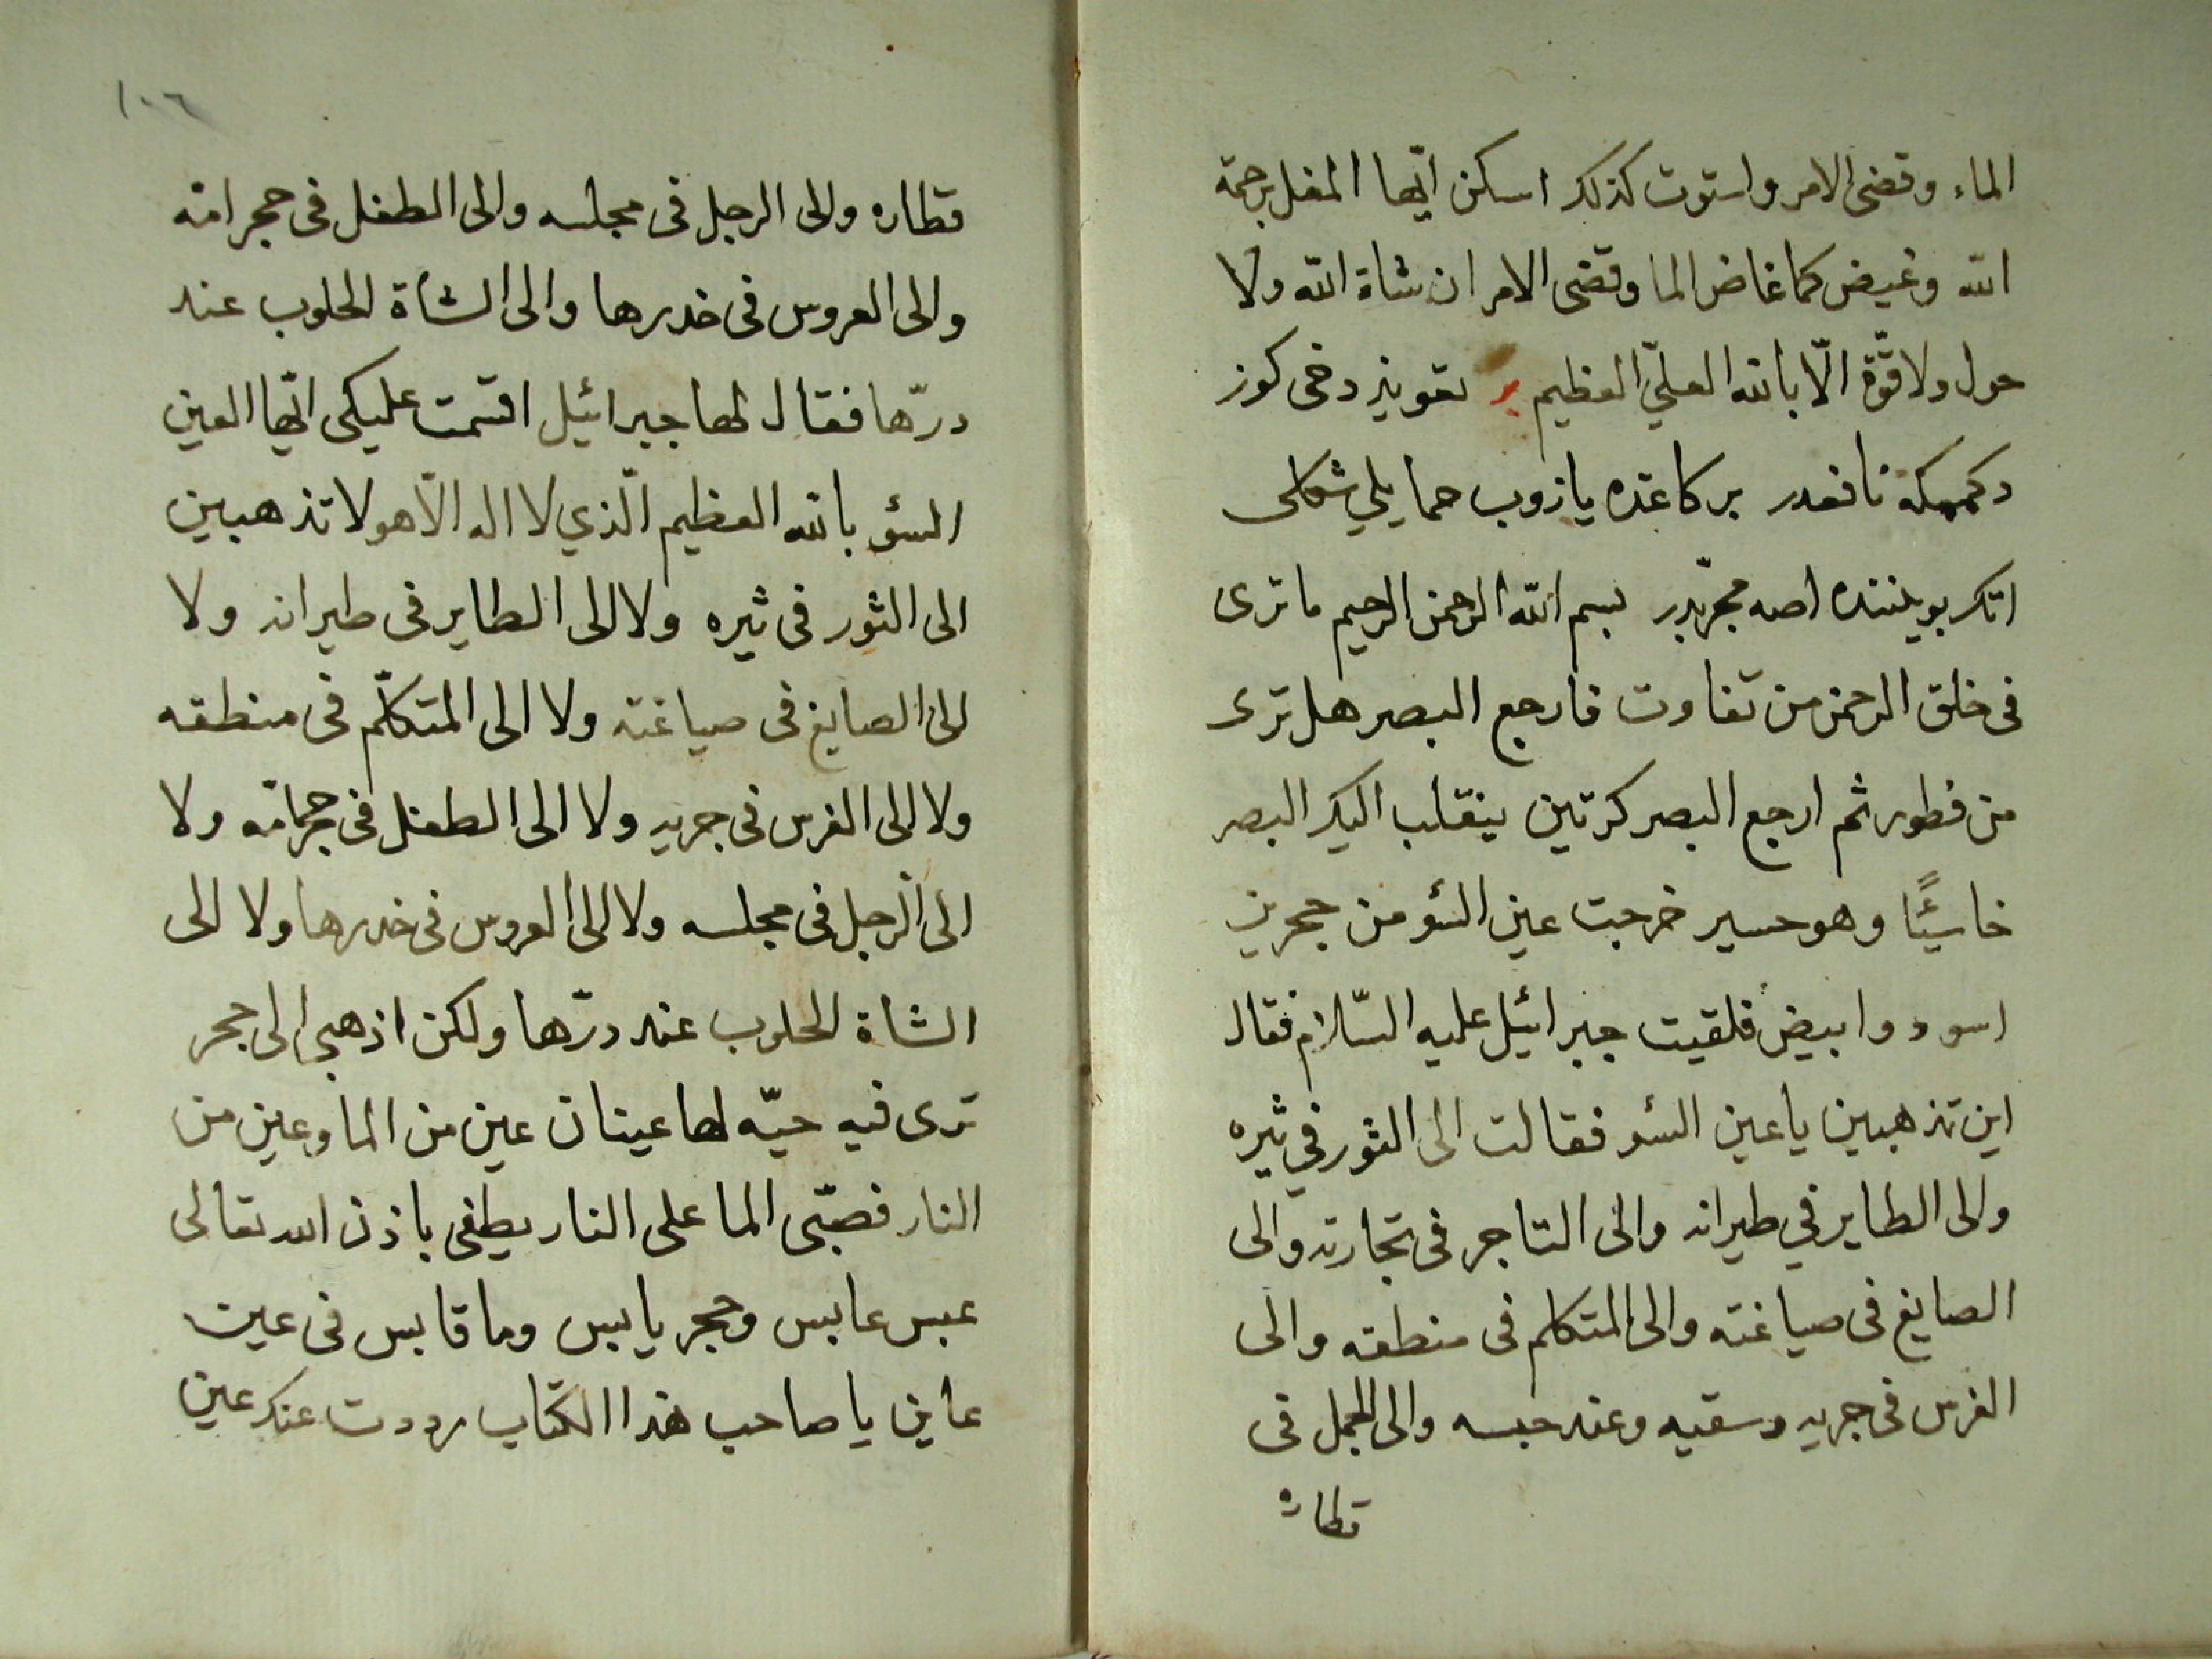 الماء وقضى الامر واستوت كذلك اسكن ايّها المغل برحمة
الله وغيض كما غاض الما وقضى الامر ان شاة الله ولا
حول ولا قوّة الّا بالله العليّ العظيم تعويذ دخى كوز
دكممكه نافعدر بر كاغده يازوب حمايلي شكلى
اتكر بوينننده اصه مجرّبدر بسم الله الرحمن الرحيم ما ترى
فى خلق الرحمن من تفاوت فارجع البصر هل ترى
من فطور ثم ارجع البصر كرتين ينقلب اليك البصر
خاسئًا وهو حسير خرجت عين السٔو من حجرين
اسود وابيض فلقيت جبرائيل عليه السّلام فقال
اين تذهبين يا عين السٔو فقالت الى الثور في ثيره
والى الطاير في طيرانه والى التاجر فى تجارته والى
الصايغ فى صياغته والى المتكلم فى منطقه والى
الفرس فى جريه وسقيه وعند حبسه والى الجمل فى
قطاره
١٠٦
قطاره والى الرجل فى مجلسه والى الطفل فى حجر امّه
والى العروس فى خدرها والى الشاة الحلوب عند
درّها فقال لها جبرائيل اقسمت عليكى ايّها العين
السٔو بالله العظيم الّذي لا اله الّا هو لا تذهبين
الى الثور فى ثيره ولا الى الطاير فى طيرانه ولا
الى الصايغ فى صياغته ولا الى المتكلّم فى منطقه
ولا الى الفرس فى جريه ولا الى الطفل فى حجر امّه ولا
الى الرجل فى مجلسه ولا الى العروس فى خدرها ولا الى
الشاة الحلوب عند درّها ولكن اذهبى الى حجر
ترى فيه حيّه لها عينان عين من الما وعين من
النار فصبّى الما على النار يطفى باذن الله تعالى
عبس عابس وحجر يابس وما قابس فى عين
عاين يا صاحب هذا الكتاب رددت عنك عين